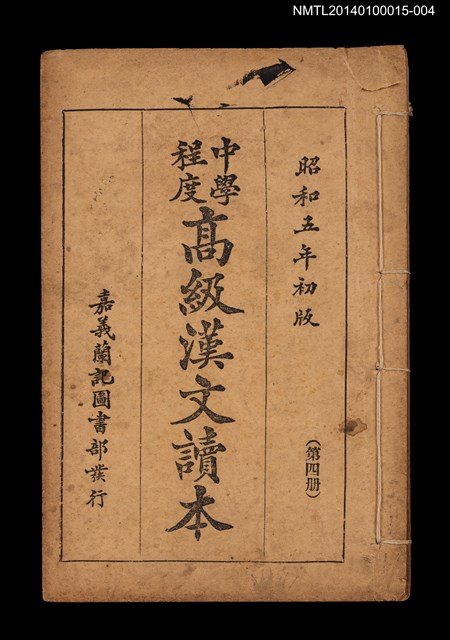 NMTL20140100015-004
昭和五年初版
(第四册)
中學程度
高級漢文讀本
嘉義蘭記圖書部發行